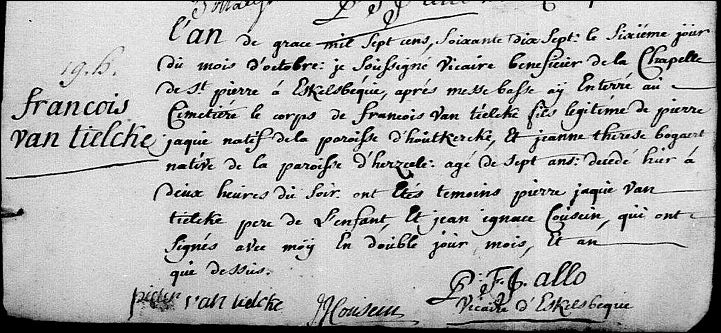 l'an de grace mil sept cens, soixante dix sept: le sixiême jour
du mois d'octobre: je soissigné vicaire beneficier de la Chapelle
de St pierre à Eskelsbeque, après messe basse aÿ Enterré au
Cimetiére le corps de francois van tielcke fils legitime de pierre
jaque natif de la paroisse d'houtkercke, et jeanne thérese bogaert
native de la paroisse d'herzele: agé de sept ans: decédé hiér à
deux heures du soir. ont etés temoins pierre jaque van
tielcke pere de l'enfant, Et jean ignace Cousein, qui ont
signés avec möÿ En double jour mois, et an
que dessus.
19. h.
francois
van tielcke
pieter van tielcke
J J Cousein
P: F. J. allo
Vicaire d'Eskelsbeque